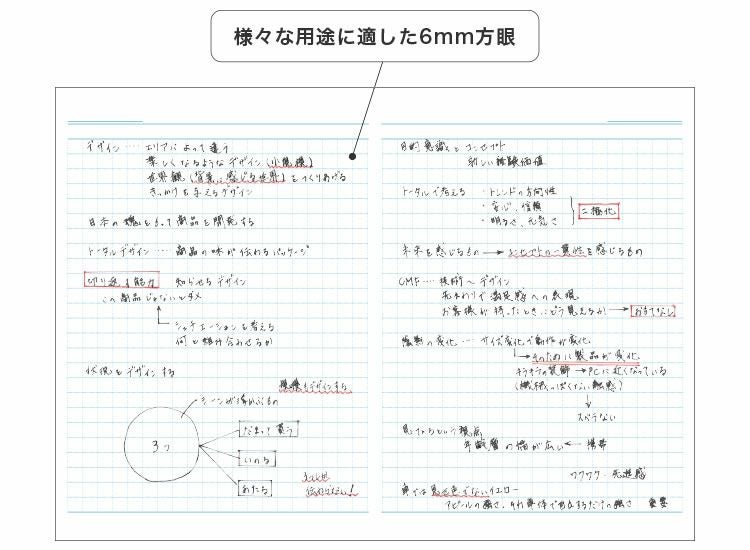 様々な用途に適した6mm方眼
デザイン‥‥エリアによって違う
楽しくなるようなデザイン
世界観(背景に感じる世界)をつくりあげる
きっかけを与えるデザイン
日本の魂をもって商品を開発する
トータルデザイン‥‥商品の味が伝わるパッケージ
切り返す能力 知らせるデザイン
この商品じゃないとダメ
シチュエーションを考える
何と組み合わせるか
状況をデザインする
環境もデザインする
シーンが浮かぶもの
3つ
だまって買う
いのち
あたらし
伝わらない!
目的意識とコンセプト
新しい体験価値
トータルで考える ・トレンドの方向性
・安心、信頼
・明るさ、元気さ
二極化
未来を感じるもの→コンセプトの一貫性を感じるもの
CMF‥‥技術へデザイン
手ざわりで満足感への表現
お客様が持ったときにどう見えるか→おもてなし
形の変化‥‥サイズ変化で動作が変化
そのために製品が変化
キラキラの装飾→PCに近くなっている
(機械っぽくない触感)
スベらない
見てもらうという視点
年齢層の幅が広い←携帯
ワクワク・先進感
アピールの強さ、それ単体で目立つだけの強さ 重要